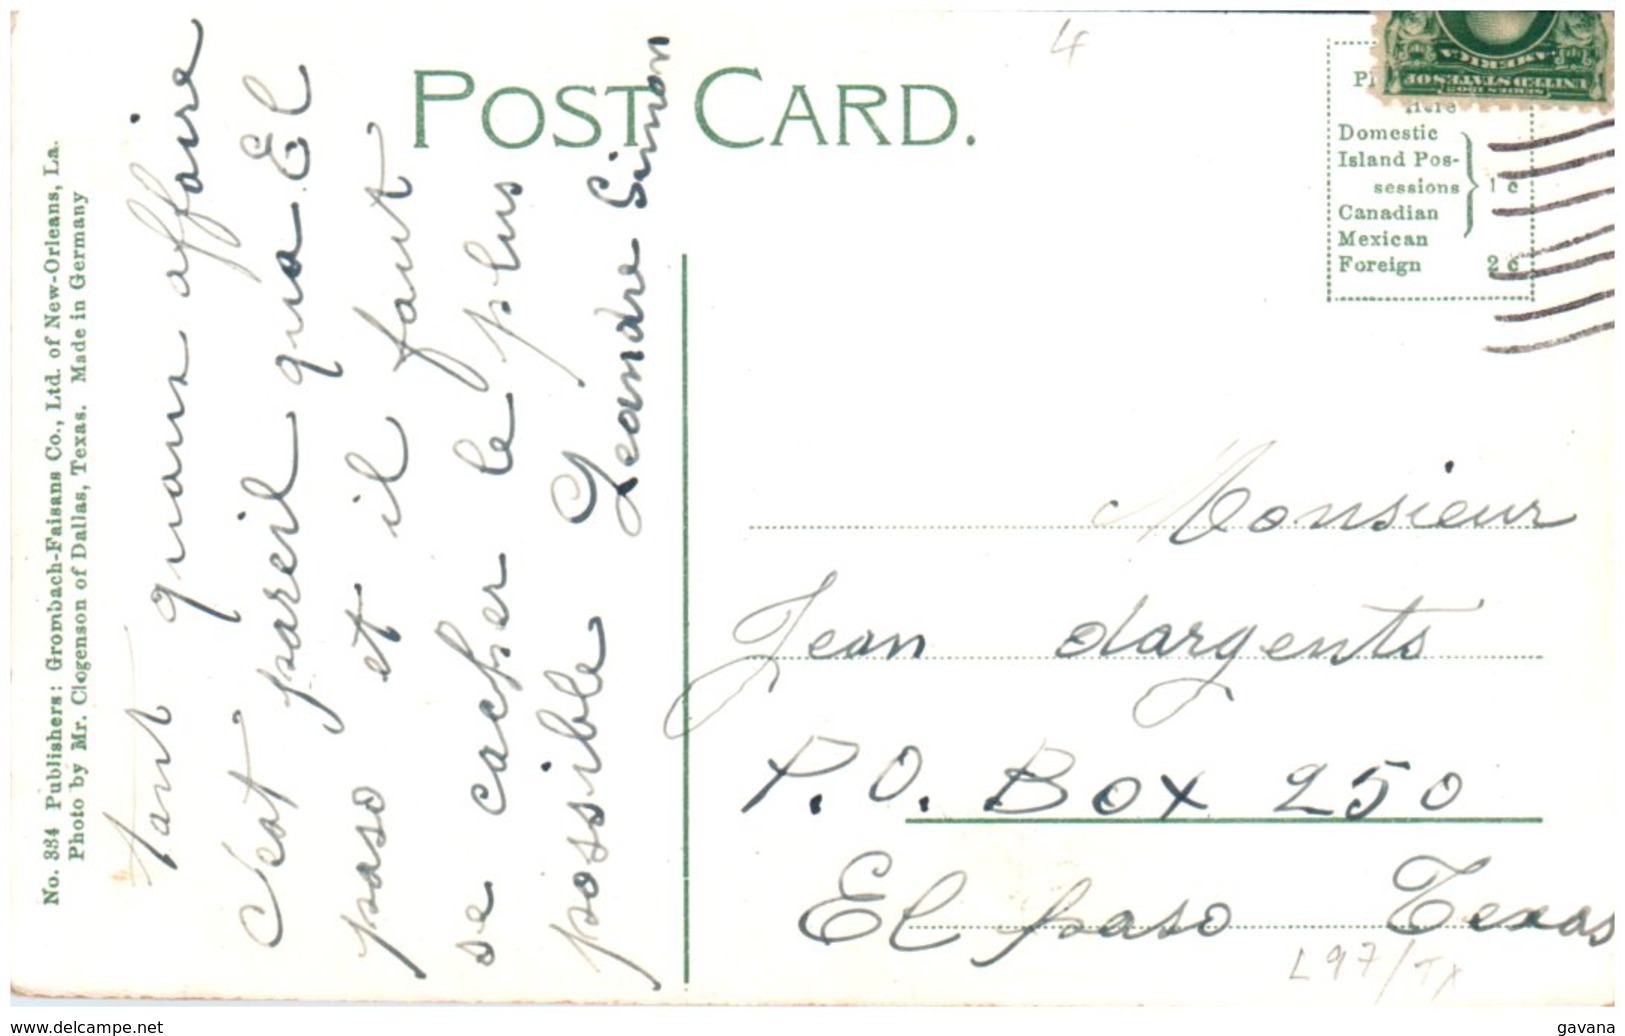 POST CARD.
4
Here
Domestic
Island Pos-
sessions 1 c
Canadian
Mexican
Foreign 2 c
SERIES 1902
UNITED STATES OF
AMERICA
No. 334 Publishers: Grombach-Faisans Co., Ltd. of New-Orleans, La.
Photo by Mr. Clogenson of Dallas, Texas. Made in Germany
tant quana affaire
C'est pareil qu'a El
paso et il faut
se cacher le plus
possible Leandre Simon
Monsieur
Jean dargents
P.O. Box 250
El paso Texas
L97/TX
www.delcampe.net
gavana